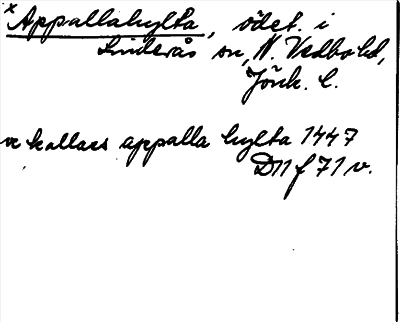 x Appallahylta, ödet. i
Linderås sn, N. Vedbo hd,
Jönk. l.
kallass appalla hylta 1447
D11 f 71 v.